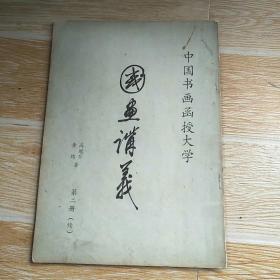 中国书画函授大学
国画讲义
第二册（线）